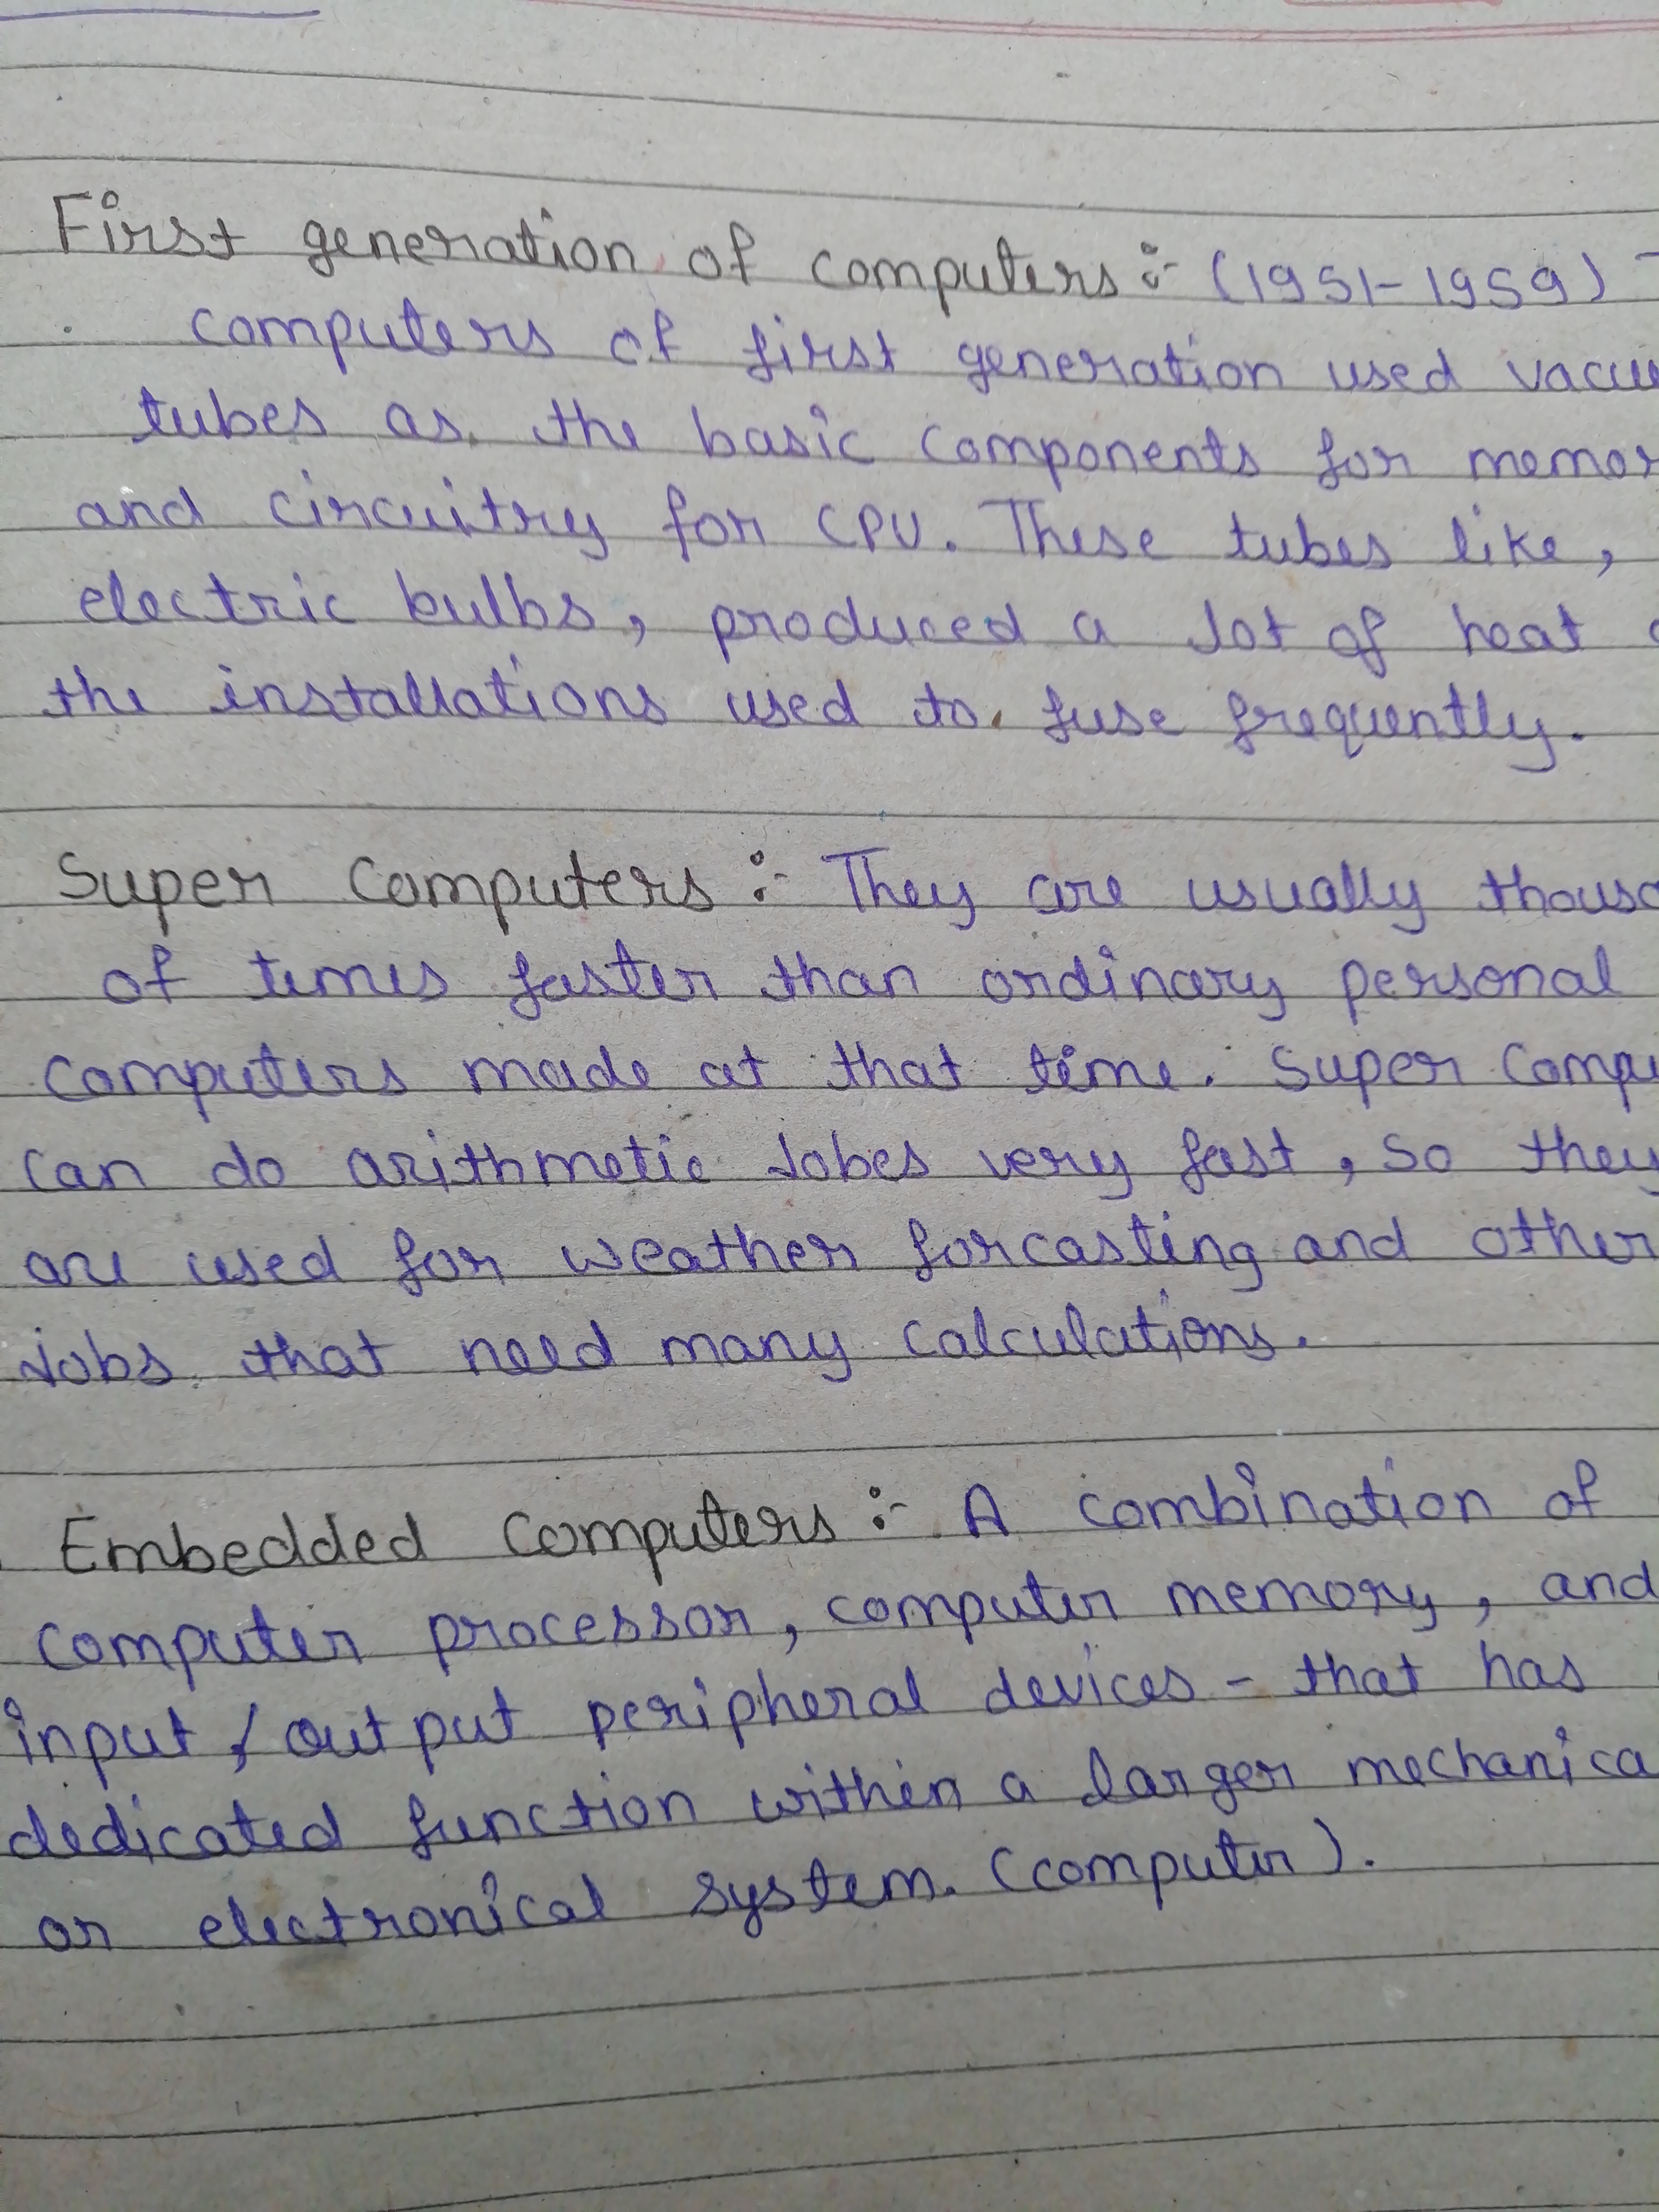 First generation of computers :- (1951-1959)
computers of first generation used vacuu
tubes as the basic components for memor
and circuitry for CPU. These tubes like,
electric bulbs, produced a lot of heat
the installations used to fuse frequently.
Super Computers :- They are usually thousa
of times faster than ordinary personal
computers made at that time. Super Compu
can do arithmetic Jobes very fast, so they
are used for weather forcasting and other
Jobs that need many calculations.
Embedded Computers :- A combination of
computer processor, computer memory, and
input / output peripheral devices - that has
dedicated function within a larger mechanica
or electronical system. (computer).